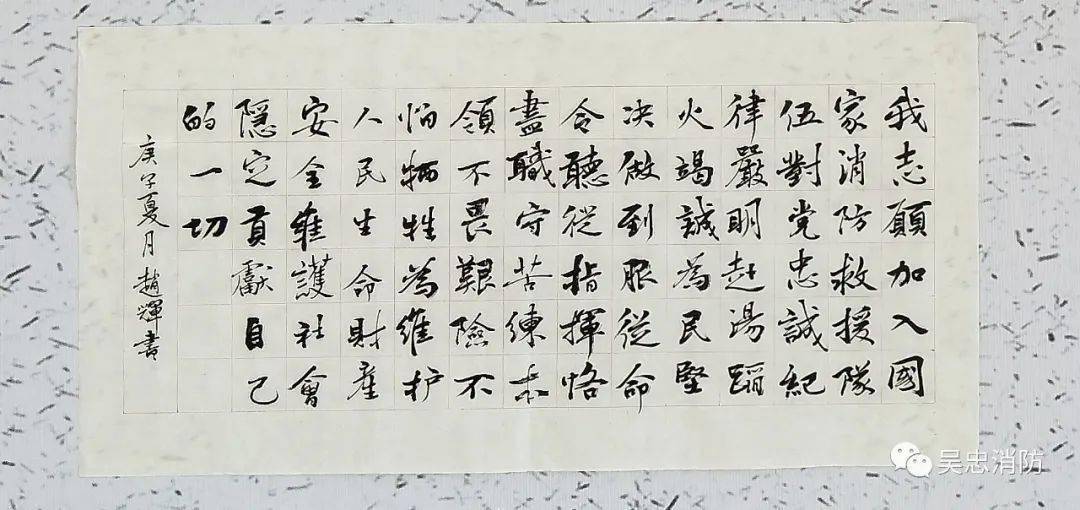 我志願加入國
家消防救援隊
伍對党忠誠紀
律嚴明赴湯蹈
火竭誠為民堅
决做到服從命
令聽從指揮恪
盡職守苦練本
領不畏艱險不
怕牺牲為維护
人民生命財產
安全維護社會
隱定貢獻自己
的一切
庚子夏月趙輝書
吴忠消防